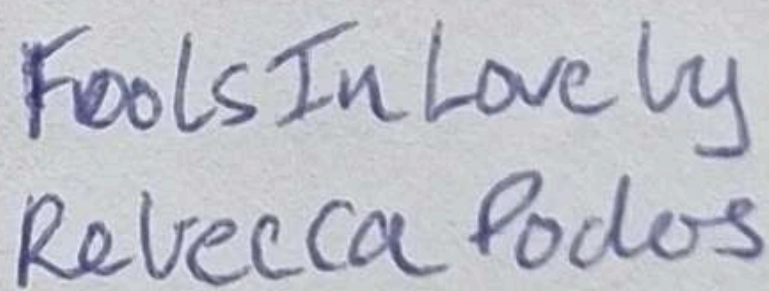 Fools In Love by
Rebecca Podos